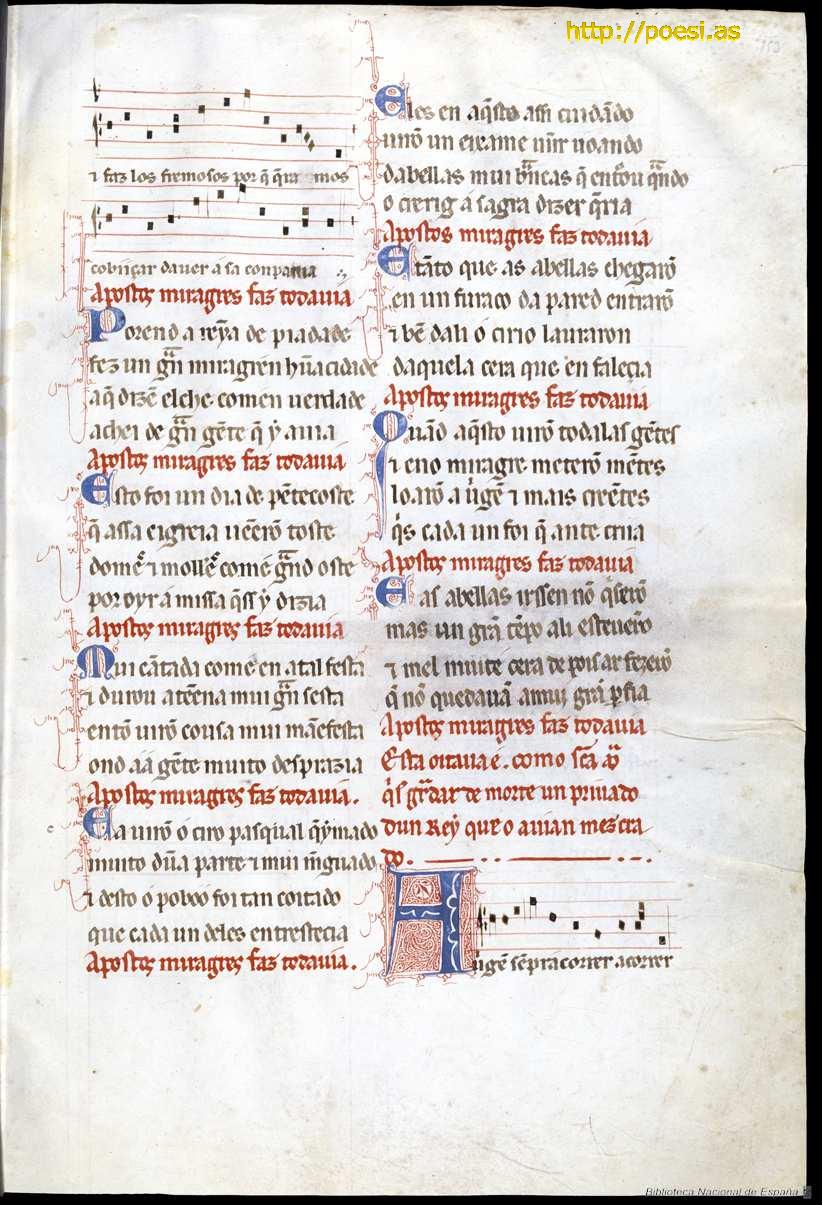 http://poesi.as
153
⁊ faz los fremosos por q̄ q̄ramos
cobiiçar dauer á sa conpania
Apostos miragres faz todauia
Porend a reỹa de piadade
fez un gr̄a miragr en hũa cidade
a q̄ dizẽ elche com en uerdade
achei de gr̄a gẽte q̄ ẏ auia
Apostos miragres faz todauia
Esto foi un dia de pẽtecoste
q̄ assa eigreia uẽerõ toste
dom̃es ⁊ moll̃es com é gr̄ad oste
por oyr á missa q̄ ss ẏ dizia
Apostos miragres faz todauia
Mui cãtada com e en atal festa
⁊ durou a tẽena mui gr̄a sesta
entõ uirõ cousa mui mãefesta
ond aá gẽte muito desprazia
Apostos miragres faz todauia.
Ca uirõ ó cirio pasqual q̄ymado
muito dũa parte ⁊ mui mĩguado
⁊ desto ó poboo foi tan coitado
que cada un deles entrestecia
Apostos miragres faz todauia.
Eles en aq̄sto assi cuidãdo
uirõ un eixame uĩir uoando
dabellas mui brãcas q̄ entrou quãdo
o crerig á sagra dizer q̄ria
Apostos miragres faz todauia
E tãto que as abellas chegarõ
en un furaco da pared entrarõ
⁊ bẽ dali ó cirio lauraron
daquela cera que en faleçia
Apostos miragres faz todauia
Quãd aq̄sto uirõ todalas gẽtes
⁊ eno miragre meterõ mẽtes
loarõ a uirgẽ ⁊ mais creẽtes
q̇s cada un foi q̄ ante criia
Apostos miragres faz todauia
E as abellas irssen nõ q̇serõ
mas un grã tẽpo ali esteuerõ
⁊ mel muit e cera depois ar fezerõ
q̄ nõ quedauã a mui grã ꝑfia
Apostos miragres faz todauia
Esta oitaua e. como sc̃a mr̃a
q̇s gr̃dar de morte un priuado
dun Rey que o auian mezcra
do.
A uirgẽ sẽpr acorrer acorrer
Biblioteca Nacional de España